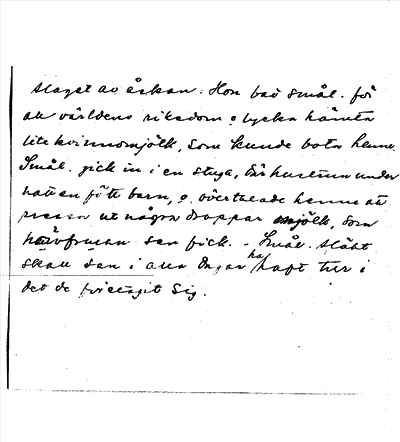 slaget av åskan. Hon bad Smål. för
all världens rikedom o lycka hämta
lite kvinnomjölk, som kunde bota henne.
Smål. gick in i en stuga, där hustrun under
natten fött barn, o. övertalade henne att
pressa ut några droppar mjölk, som
frun sen fick. - Smål. släkt
skall sen i alla dagar ha haft tur i
det de företagit sig.